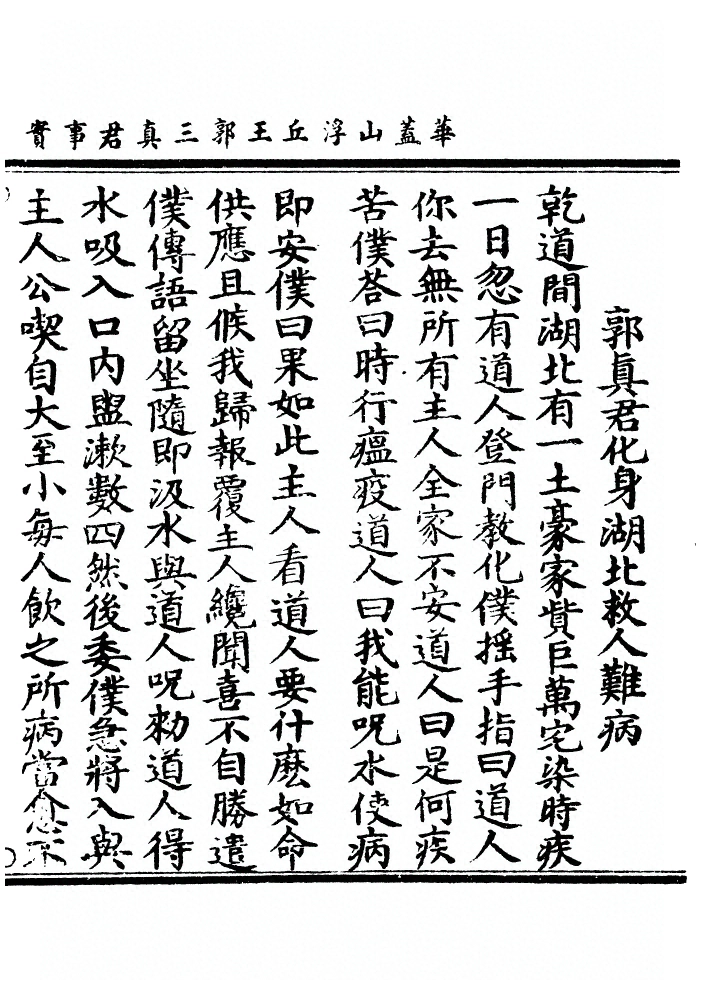 華蓋山浮丘王郭三真君事實
郭真君化身湖北救人難病
乾道間湖北有一土豪家貲巨萬宅染時疾
一日忽有道人登門教化僕揺手指曰道人
你去無所有主人全家不安道人曰是何疾
苦僕荅曰時行瘟疫道人曰我能呪水使病
即安僕曰果如此主人看道人要什麽如命
供應且候我歸報覆主人纔聞喜不自勝遣
僕傳語留坐隨即汲水與道人呪勑道人得
水吸入口内盥漱數四然後委僕急將入與
主人公喫自大至小每人飲之所病當愈不